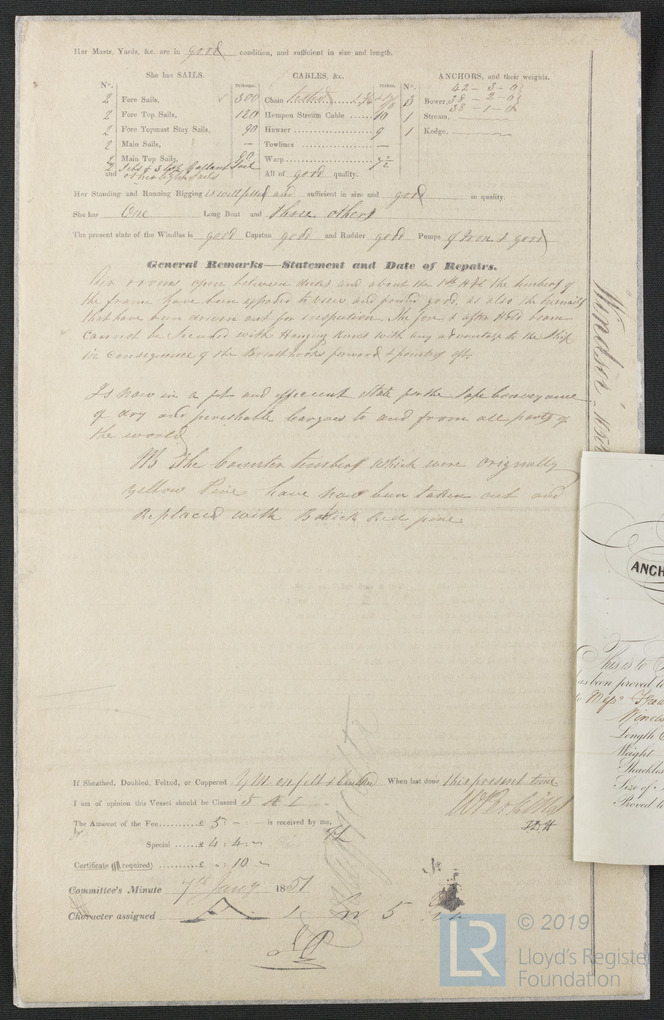 Her Masts, Yards, &c. are in good condition, and sufficient in size and length.
She has SAILS.
CABLES, &c.
ANCHORS, and their weights.
No.
Fathoms.
Inches.
No.
2 Fore Sails, 300 Chain 3
2 Fore Top Sails, 120 Hempen Stream Cable 10 1
2 Fore Topmast Stay Sails, 90 Hawser 9 1
2 Main Sails, — Towlines —
2 Main Top Sails, Warp
and All of good quality.
Bower, 42 - 3 - 0
38 - 2 - 0
38 - 1 - 0
Stream,
Kedge,
Her Standing and Running Rigging is well fitted and sufficient in size and good in quality.
She has One Long Boat and three others
The present state of the Windlass is good Capstan good and Rudder good Pumps of Iron & good
General Remarks—Statement and Date of Repairs.
Air rooms open between decks and about the the timbers of
the frame have been exposed to view and found good, as also the
that have been driven out for inspection. The fore & after Hold beam
cannot be secured with Hanging Knees with any advantage to the Ship
in consequence of the Breasthooks forward & pointers aft.
Is now in a fit and efficient state for the safe conveyance
of dry and perishable cargoes to and from all parts of
the world
NB The Counter timbers which were originally
Yellow Pine have now been taken out and
Replaced with Baltick Red pine.
If Sheathed, Doubled, Felted, or Coppered Y.M. on felt & When last done this present time
I am of opinion this Vessel should be Classed 5 A 1
The Amount of the Fee......£ 5 : - is received by me,
Special ......£ 4 : 4 : -
Certificate (if required) ......£ - : 10 : -
Committee's Minute 7th Jany 1851
Character assigned A 1 5
Windsor
ANCH
This is to
has been proved to
to Messrs
Length
Weight
Shackles
Size of
Proved to
LR
© 2019
Lloyd's Register
Foundation